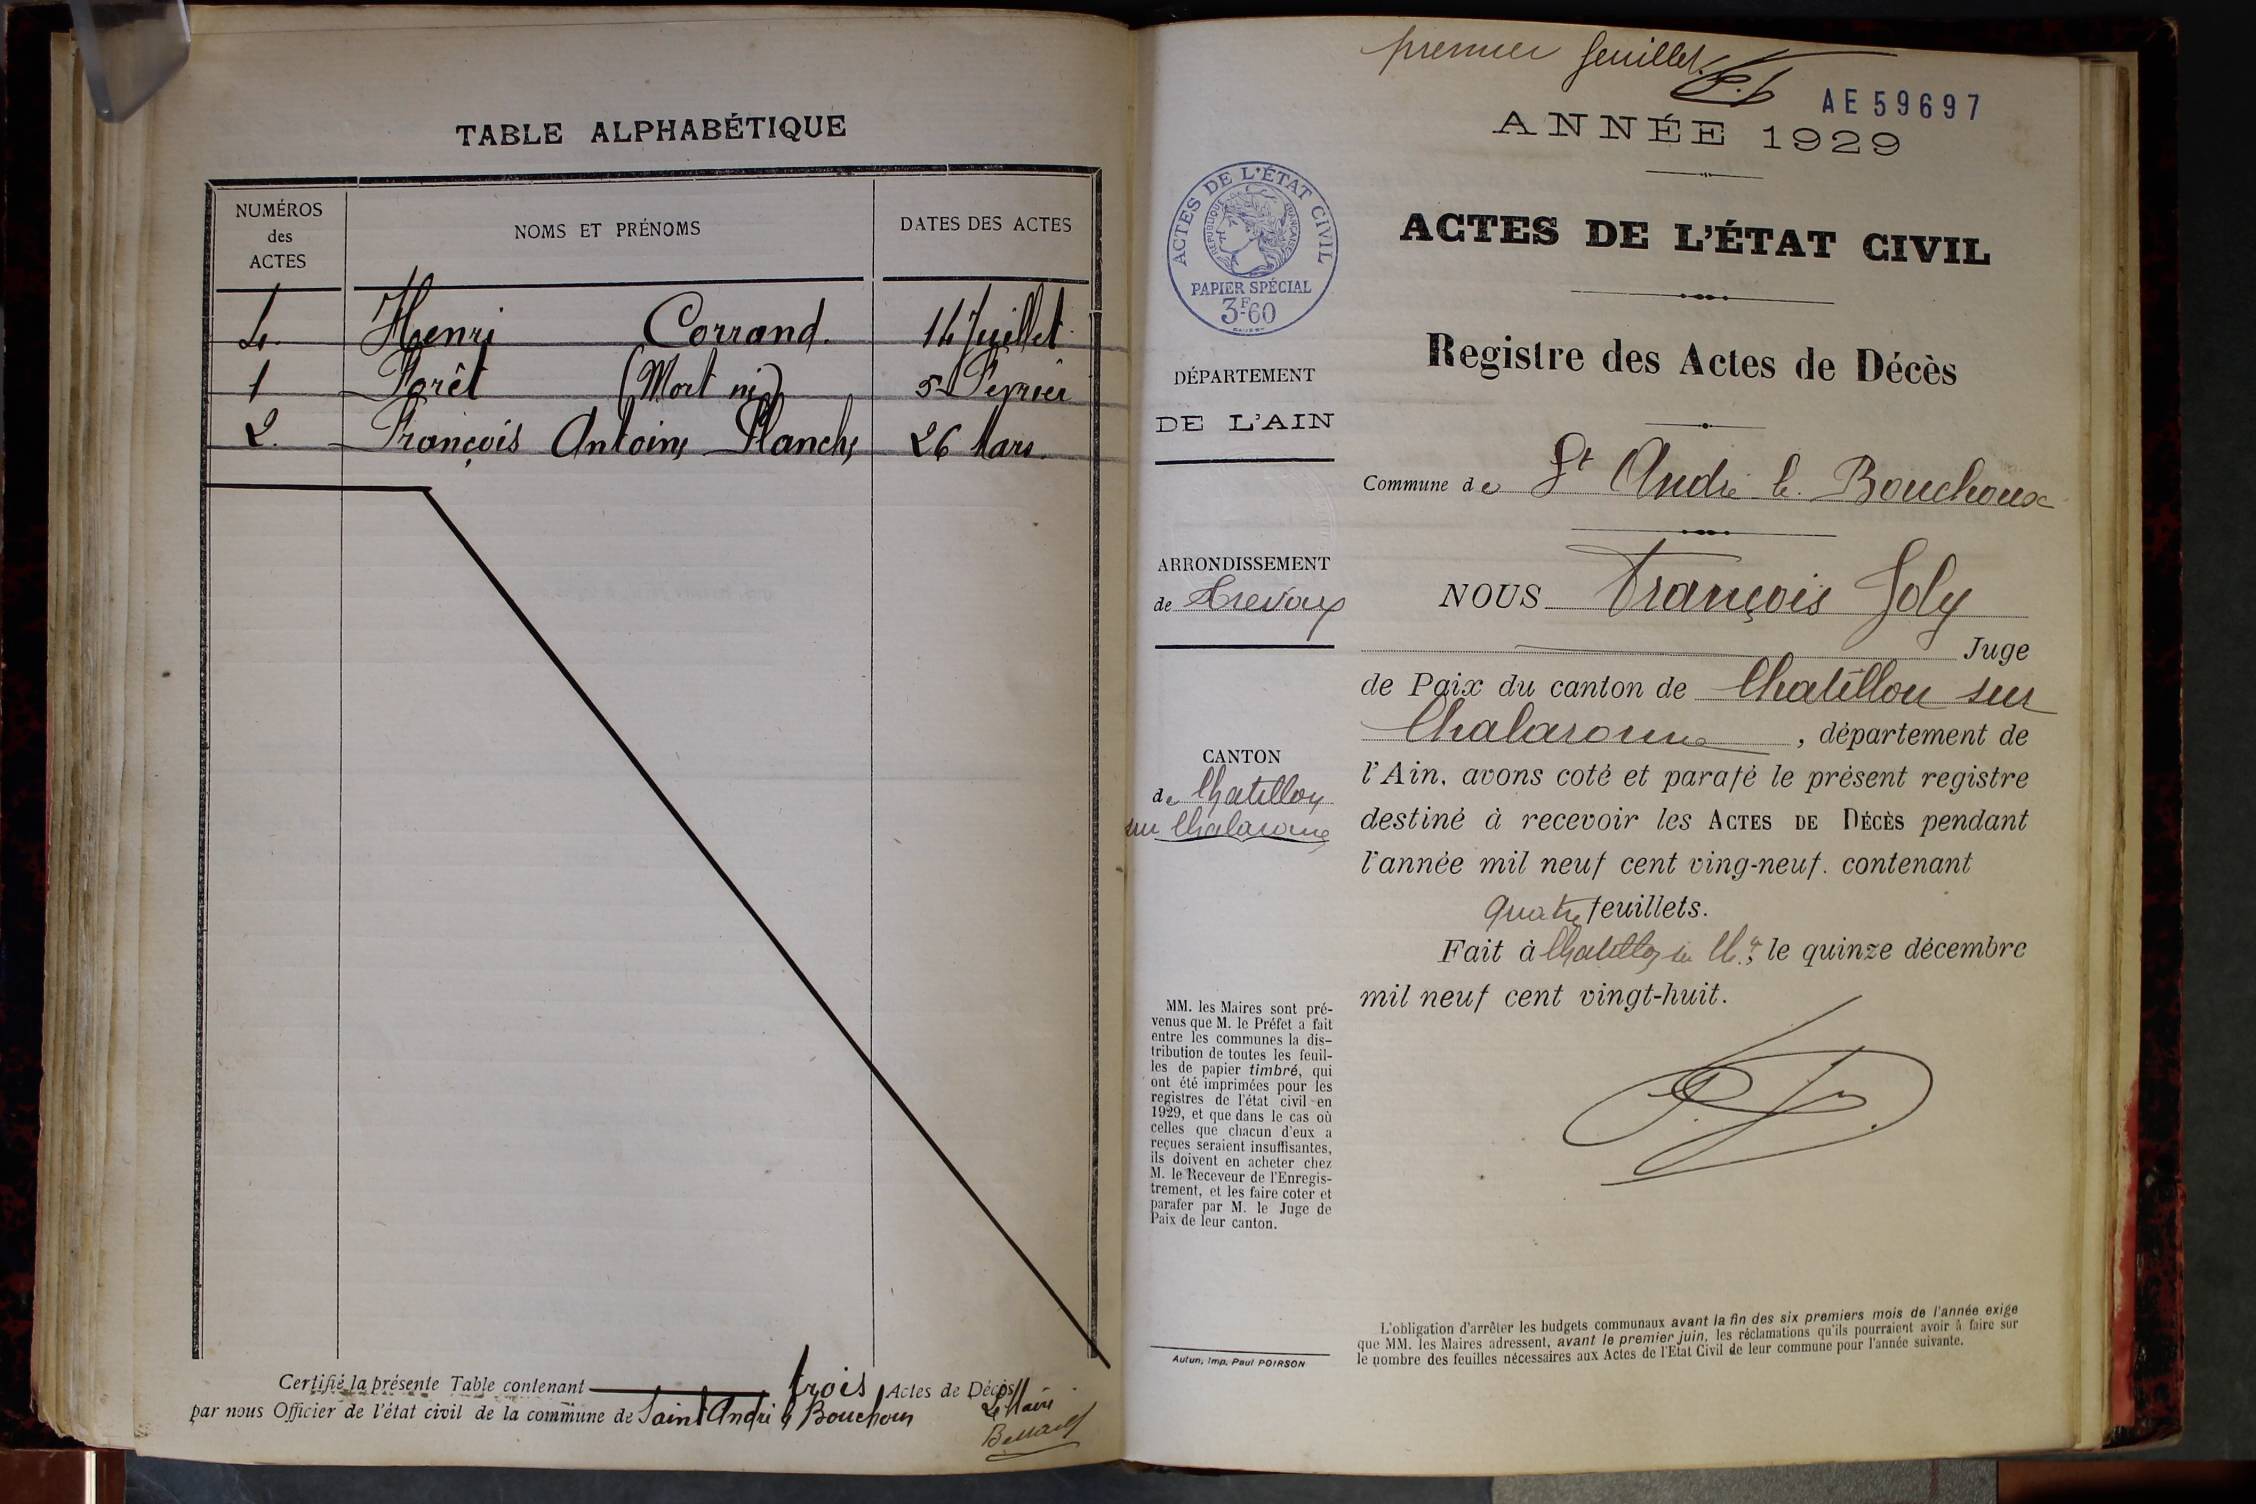 TABLE ALPHABÉTIQUE
NUMÉROS
des
ACTES
NOMS ET PRÉNOMS
DATES DES ACTES
4. Henri Corrand. 14 Juillet
1 Forêt (Mort né) 5 Fevrier
2. François Antoine Planche 26 Mars.
Certifié la présente Table contenant trois Actes de Décès
par nous Officier de l'état civil de la commune de Saint André le Bouchoux
Le Maire
premier feuillet.
AE59697
ANNÉE 1929
ACTES DE L'ÉTAT CIVIL
RÉPUBLIQUE FRANÇAISE
PAPIER SPÉCIAL
3F60
ACTES DE L'ÉTAT CIVIL
Registre des Actes de Décès
DÉPARTEMENT
DE L'AIN
Commune de St André le Bouchoux
ARRONDISSEMENT
de Trevoux
NOUS François Joly
Juge
de Paix du canton de Chatillon sur
Chalaronne, département de
l'Ain, avons coté et parafé le présent registre
destiné à recevoir les ACTES DE DÉCÈS pendant
l'année mil neuf cent ving-neuf. contenant
quatre feuillets.
Fait à Chatillon sur Ch.e, le quinze décembre
mil neuf cent vingt-huit.
CANTON
de Chatillon
sur Chalaronne
MM. les Maires sont pré-
venus que M. le Préfet a fait
entre les communes la dis-
tribution de toutes les feuil-
les de papier timbré, qui
ont été imprimées pour les
registres de l'état civil en
1929, et que dans le cas où
celles que chacun d'eux a
reçues seraient insuffisantes,
ils doivent en acheter chez
M. le Receveur de l'Enregis-
trement, et les faire coter et
parafer par M. le Juge de
Paix de leur canton.
Autun, Imp. Paul POIRSON
L'obligation d'arrêter les budgets communaux avant la fin des six premiers mois de l'année exige
que MM. les Maires adressent, avant le premier juin, les réclamations qu'ils pourraient avoir à faire sur
le nombre des feuilles nécessaires aux Actes de l'Etat Civil de leur commune pour l'année suivante.